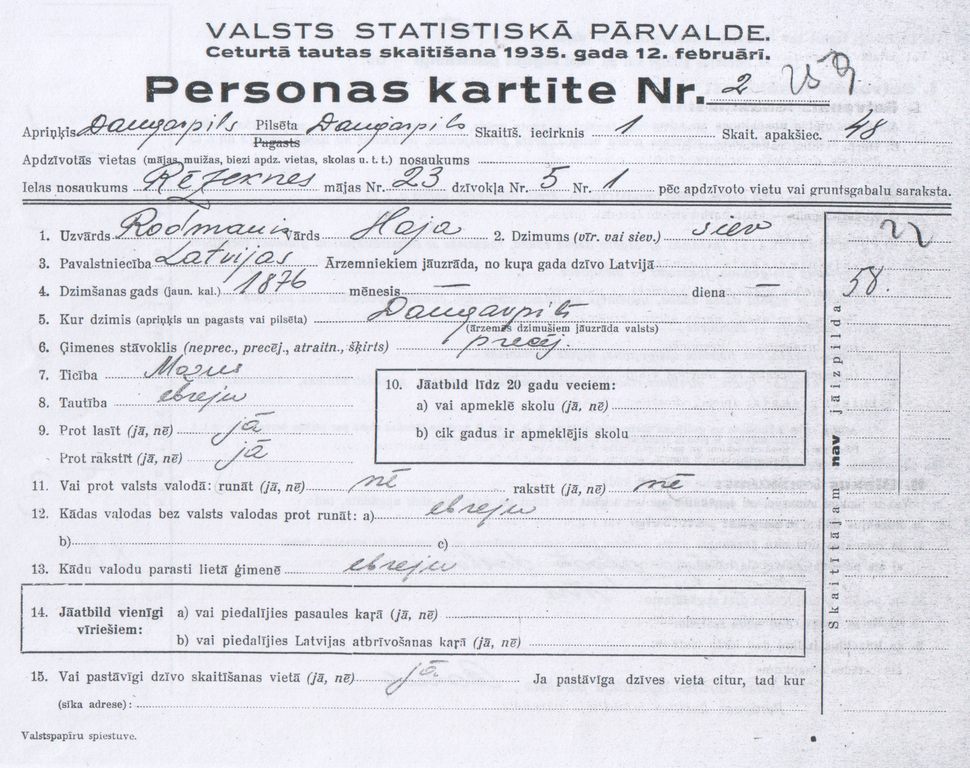 VALSTS STATISTISKĀ PĀRVALDE.
Ceturtā tautas skaitīšana 1935. gada 12. februārī.
Personas kartite Nr. 2
Apriņķis Daugavpils Pilsēta Daugavpils Skaitīš. iecirknis 1 Skait. apakšiec. 48
Pagasts
Apdzīvotās vietas (mājas, muižas, biezi apdz. vietas, skolas u. t. t.) nosaukums
Ielas nosaukums Rēzeknes mājas Nr. 23 dzīvokļa Nr. 5 Nr. 1 pēc apdzīvoto vietu vai gruntsgabalu saraksta.
1. Uzvārds Rodmanis Vārds Haja 2. Dzimums (vīr. vai siev.) siev 22
3. Pavalstniecība Latvijas Ārzemniekiem jāuzrāda, no kuŗa gada dzīvo Latvijā
4. Dzimšanas gads (jaun. kal.) 1876 mēnesis — diena — 58.
5. Kur dzimis (apriņķis un pagasts vai pilsēta) Daugavpilī
(ārzemēs dzimušiem jāuzrāda valsts)
6. Ģimenes stāvoklis (neprec., precēj., atraitn., šķirts) precēj.
7. Ticība Mozus
8. Tautība ebreju
9. Prot lasīt (jā, nē) jā
Prot rakstīt (jā, nē) jā
10. Jāatbild līdz 20 gadu veciem:
a) vai apmeklē skolu (jā, nē)
b) cik gadus ir apmeklējis skolu
11. Vai prot valsts valodā: runāt (jā, nē) nē rakstīt (jā, nē) nē
12. Kādas valodas bez valsts valodas prot runāt: a) ebreju
b) c)
13. Kādu valodu parasti lietā ģimenē ebreju
14. Jāatbild vienīgi vīriešiem:
a) vai piedalījies pasaules kaŗā (jā, nē)
b) vai piedalījies Latvijas atbrīvošanas kaŗā (jā, nē)
15. Vai pastāvīgi dzīvo skaitīšanas vietā (jā, nē) jā Ja pastāvīga dzīves vieta citur, tad kur
(sīka adrese):
Skaitītājam nav jāizpilda
Valstspapīru spiestuve.